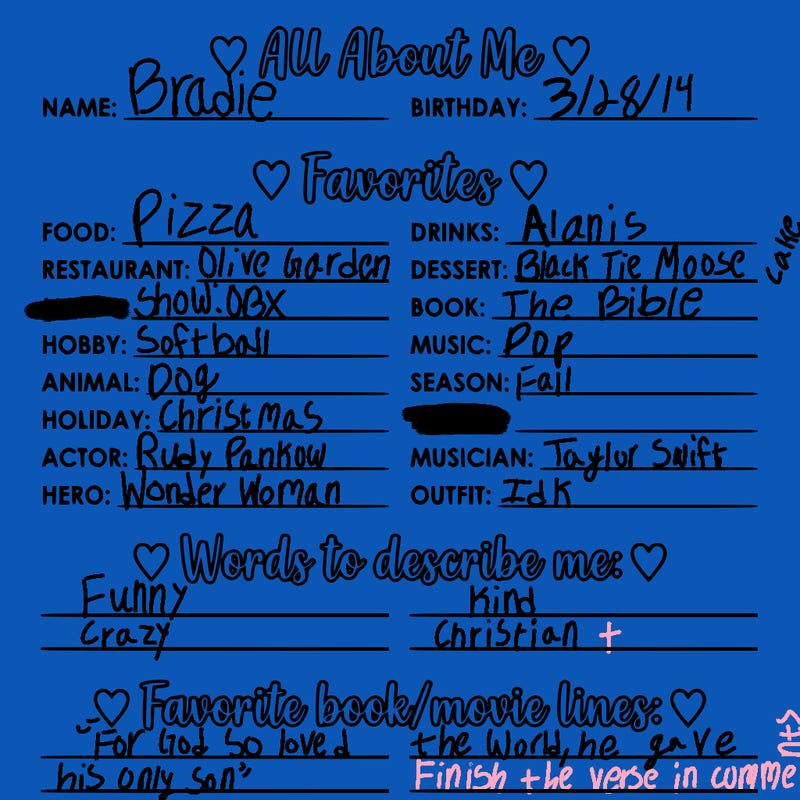 ♡ All About Me ♡
NAME: Bradie BIRTHDAY: 3/28/14
♡ Favorites ♡
FOOD: Pizza DRINKS: Alanis
RESTAURANT: Olive Garden DESSERT: Black Tie Moose cake
Show: OBX BOOK: The Bible
HOBBY: Softball MUSIC: Pop
ANIMAL: Dog SEASON: Fall
HOLIDAY: Christmas
ACTOR: Rudy Pankow MUSICIAN: Taylor Swift
HERO: Wonder Woman OUTFIT: Idk
♡ Words to describe me: ♡
Funny Kind
Crazy Christian †
♡ Favorite book/movie lines: ♡
"For God so loved the World, he gave
his only son" Finish the verse in comments